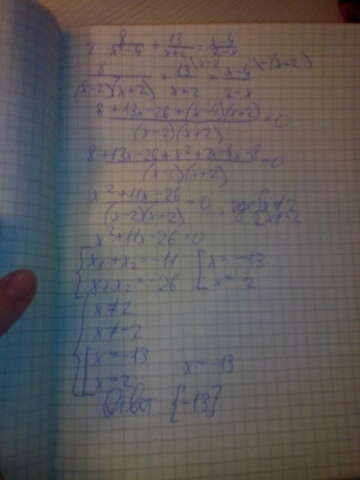 2 8/(x²-4) + 13/(x+2) = (x-4)/(2-x)
8/((x-2)(x+2)) + 13/(x+2) \x-2 = (x-4)/(2-x) \-(x+2)
(8+13x-26+(x-4)(x+2))/((x-2)(x+2)) = 0
(8+13x-26+x²+2x-4x-8)/((x-2)(x+2)) = 0
(x²+11x-26)/((x-2)(x+2)) = 0, { x≠2 x≠-2
x²+11x-26=0
{ x₁+x₂=-11 [ x=-13
x₁x₂=-26 x=2
{ x≠2
x≠-2
[ x=-13 x=-13
x=2
Ответ {-13}